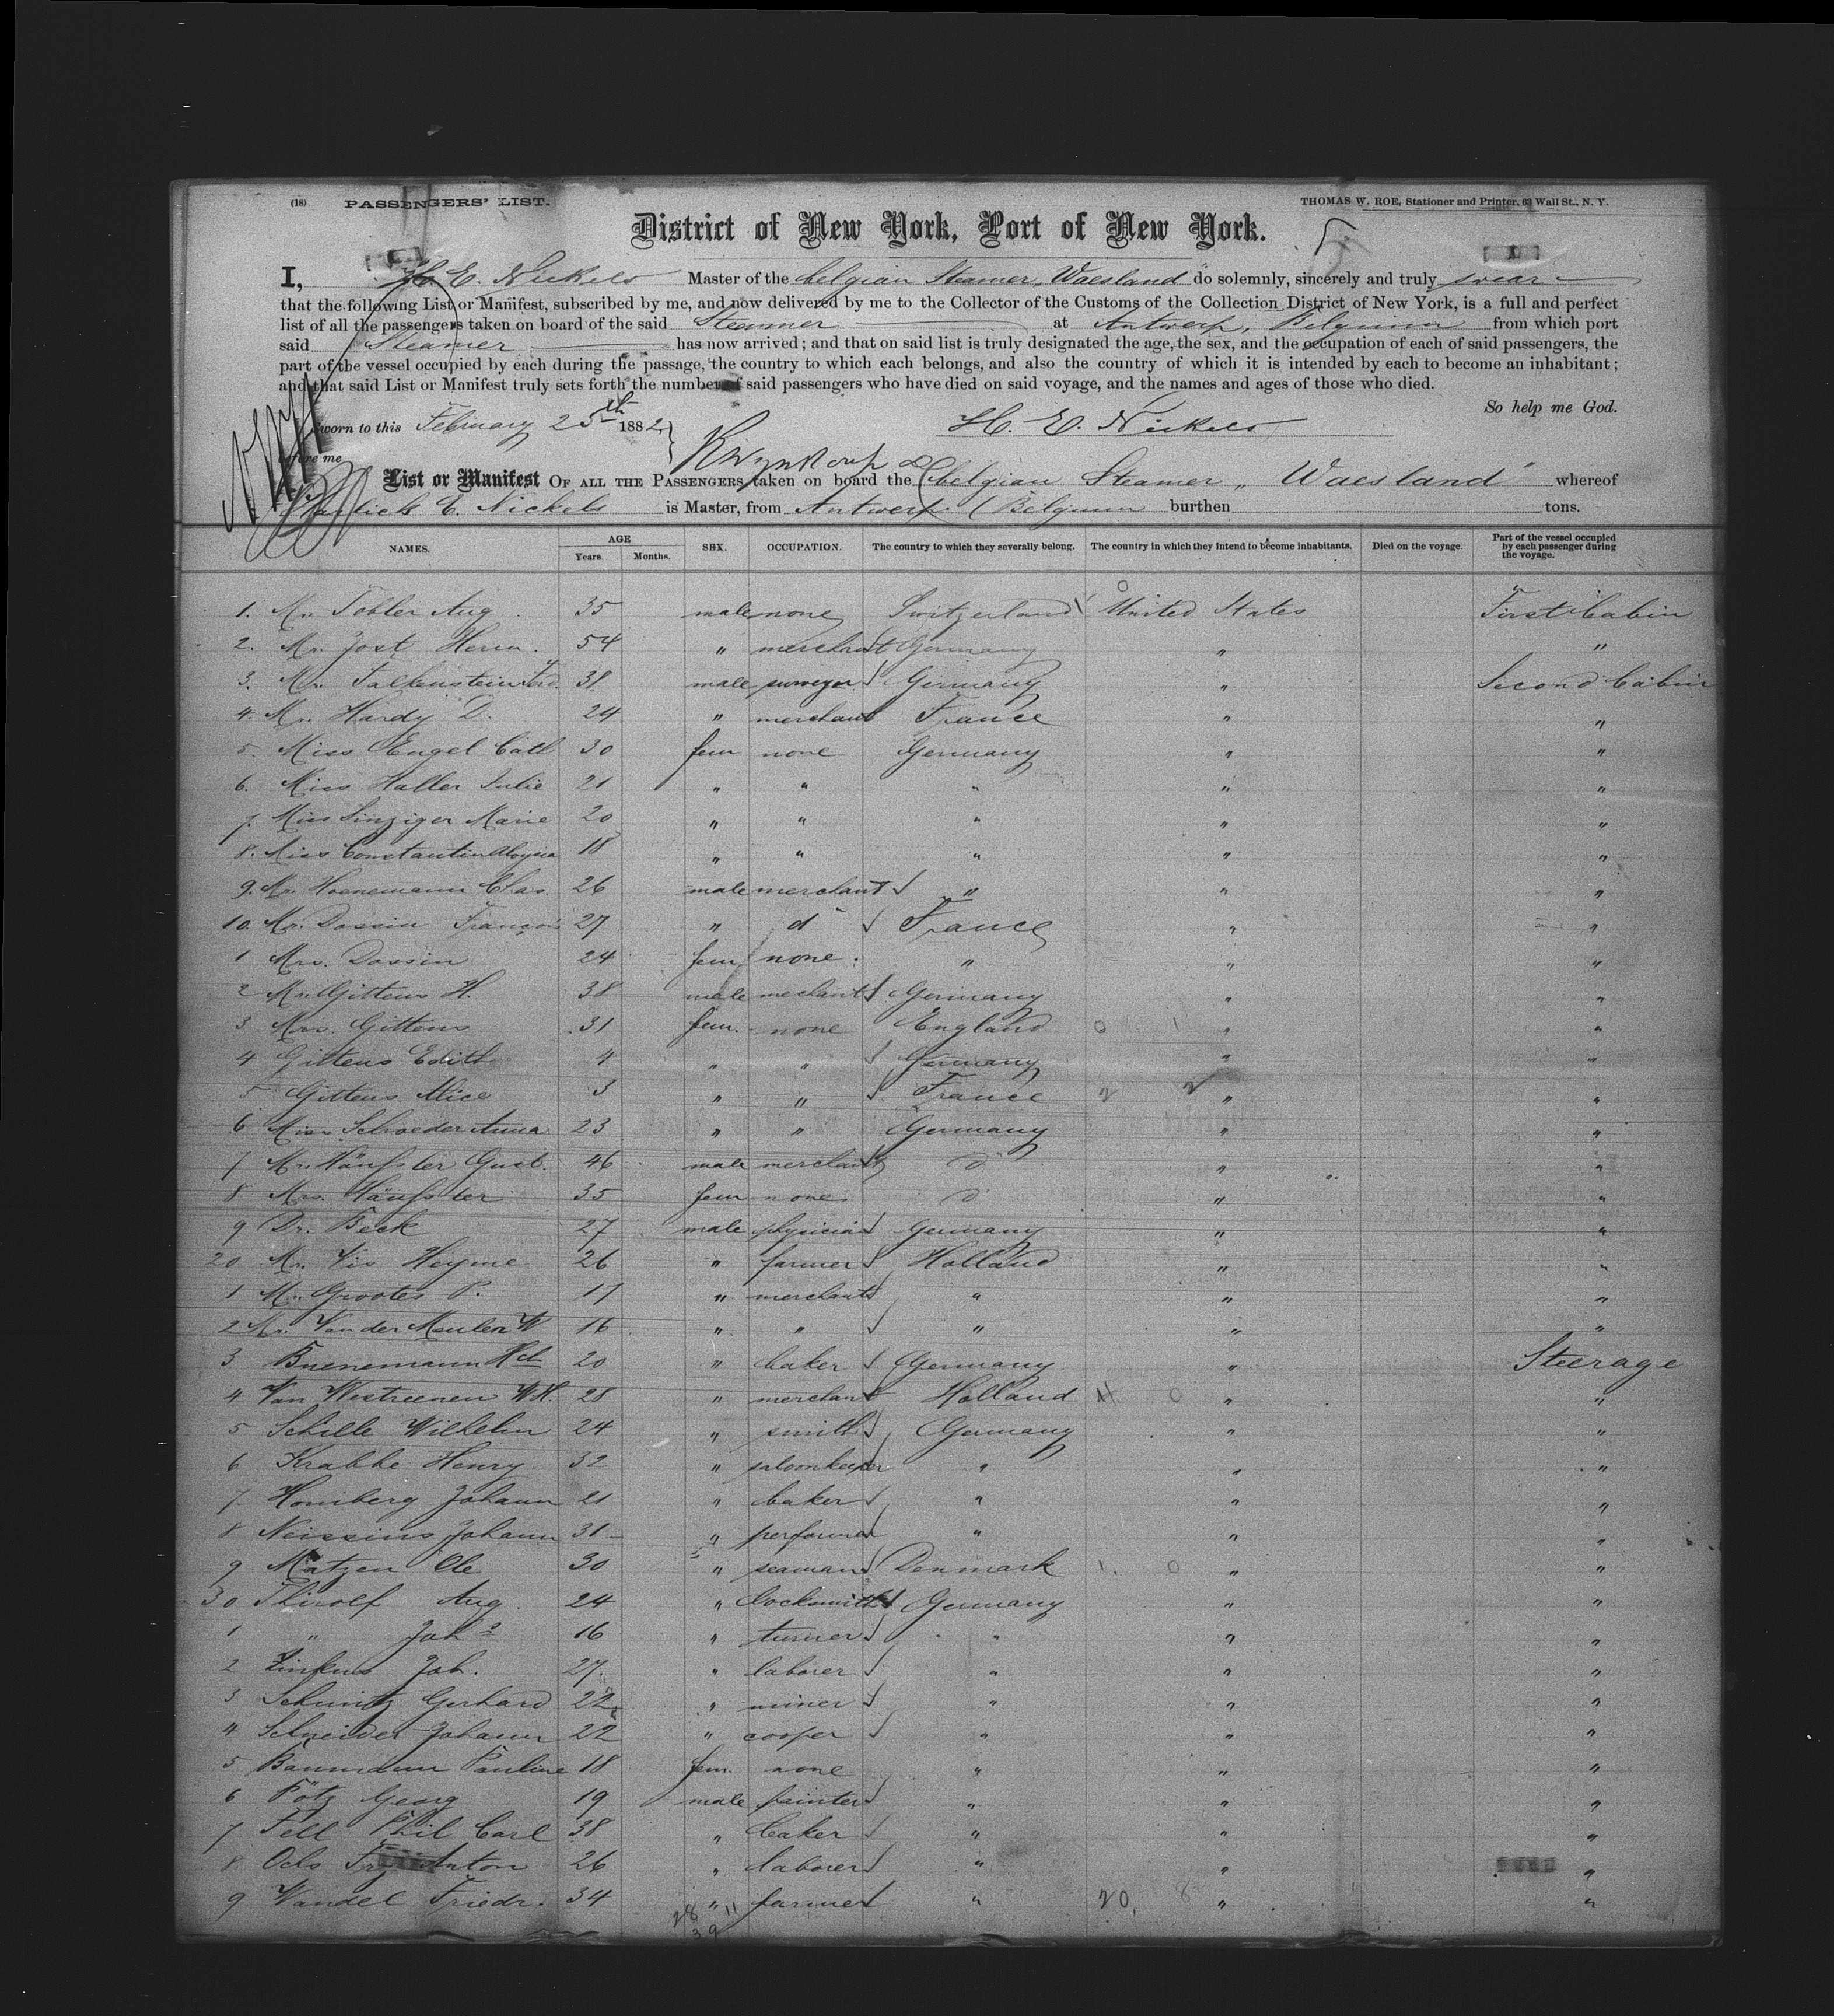 (18) PASSENGERS' LIST. THOMAS W. ROE, Stationer and Printer, 63 Wall St., N. Y.
District of New York, Port of New York.
I, H. E. Nickels Master of the belgian Steamer, Waesland do solemnly, sincerely and truly swear
that the following List or Manifest, subscribed by me, and now delivered by me to the Collector of the Customs of the Collection District of New York, is a full and perfect
list of all the passengers taken on board of the said Steamer at Antwerp, Belgium from which port
said Steamer has now arrived; and that on said list is truly designated the age, the sex, and the occupation of each of said passengers, the
part of the vessel occupied by each during the passage, the country to which each belongs, and also the country of which it is intended by each to become an inhabitant;
and that said List or Manifest truly sets forth the number of said passengers who have died on said voyage, and the names and ages of those who died.
So help me God.
Sworn to this February 25th 1882, H. E. Nickels
before me
List or Manifest OF ALL THE PASSENGERS taken on board the belgian Steamer „Waesland" whereof
E. Nickels is Master, from Antwerp (Belgium burthen tons.
NAMES. AGE Years. Months. SEX. OCCUPATION. The country to which they severally belong. The country in which they intend to become inhabitants. Died on the voyage. Part of the vessel occupied by each passenger during the voyage.
1. Mr. Tobler Aug. 35 male none Switzerland United States First Cabin
2. Mr. Jost Herm. 54 " merchant Germany " "
3. Mr. Falkenstein Ferd. 38 male surveyor Germany " Second Cabin
4. Mr. Hardy D. 24 " merchant France " "
5. Miss Engel Cath 30 fem none Germany " "
6. Miss Haller Julie 21 " " " " "
7. Miss Sinziger Marie 20 " " " " "
8. Miss Constantin Aloysia 18 " " " " "
9. Mr. Hoenemann Chas. 26 male merchant " " "
10. Mr. Dossin François 27 " do France " "
1 Mrs. Dossin 24 fem none. " " "
2 Mr. Gittens H. 38 male mechant Germany " "
3 Mrs. Gittens 31 fem. none England " "
4 Gittens Edith 4 " " Germany " "
5 Gittens Alice 3 " " France " "
6 Miss Schroeder Anna 23 " " Germany " "
7 Mr. Häußler Gust. 46 male merchant do " "
8 Mrs. Häußler 35 fem none do " "
9 Dr. Beck 27 male physician Germany " "
20 Mr. Vis Heyme 26 " farmer Holland " "
1 Mr. Grootes P. 17 " merchant " " "
2 Mr. Van der Meulen W 16 " " " " "
3 Buenemann Hch 20 " baker Germany " Steerage
4 Van Westreenen W.H. 28 " merchant Holland " "
5 Schille Wilhelm 24 " smith Germany " "
6 Krabbe Henry 32 " saloonkeeper " " "
7 Homberg Johann 21 " baker " " "
8 Neissius Johann 31 " performer " " "
9 Matzen Ole 30 " seaman Denmark " "
30 Thirolf Aug. 24 " locksmith Germany " "
1 " Joh 16 " turner " " "
2 Joh. 27. " laborer " " "
3 Schmitz Gerhard 22 " miner " " "
4 Schneider Johann 22 " cooper " " "
5 Baumann Pauline 18 fem. none " " "
6 Pötz Georg 19 male painter " " "
7 Fell Phil Carl 38 " baker " " "
8 Ochs Frz Anton 26 " laborer " " "
9 Wandel Friedr. 34 " farmer " " "
28 11
39